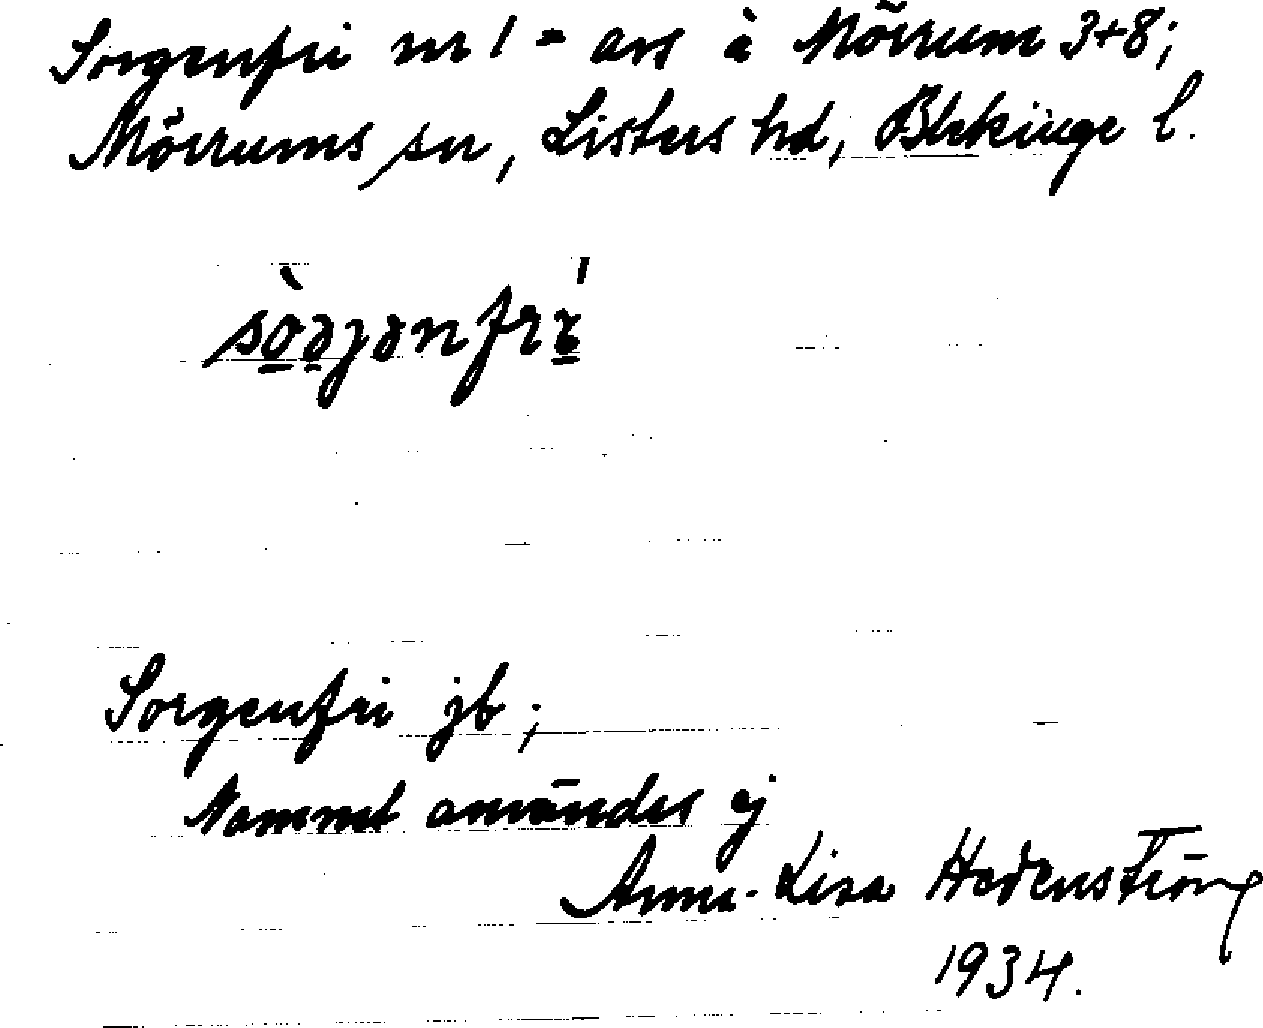 Sorgenfri nr 1 = avs å Mörrum 3+8;
Mörrums sn, Listers hd, Blekinge l.
Sorgenfri jb;
Namnet användes ej
Anna-Lisa Hedenström
1934.